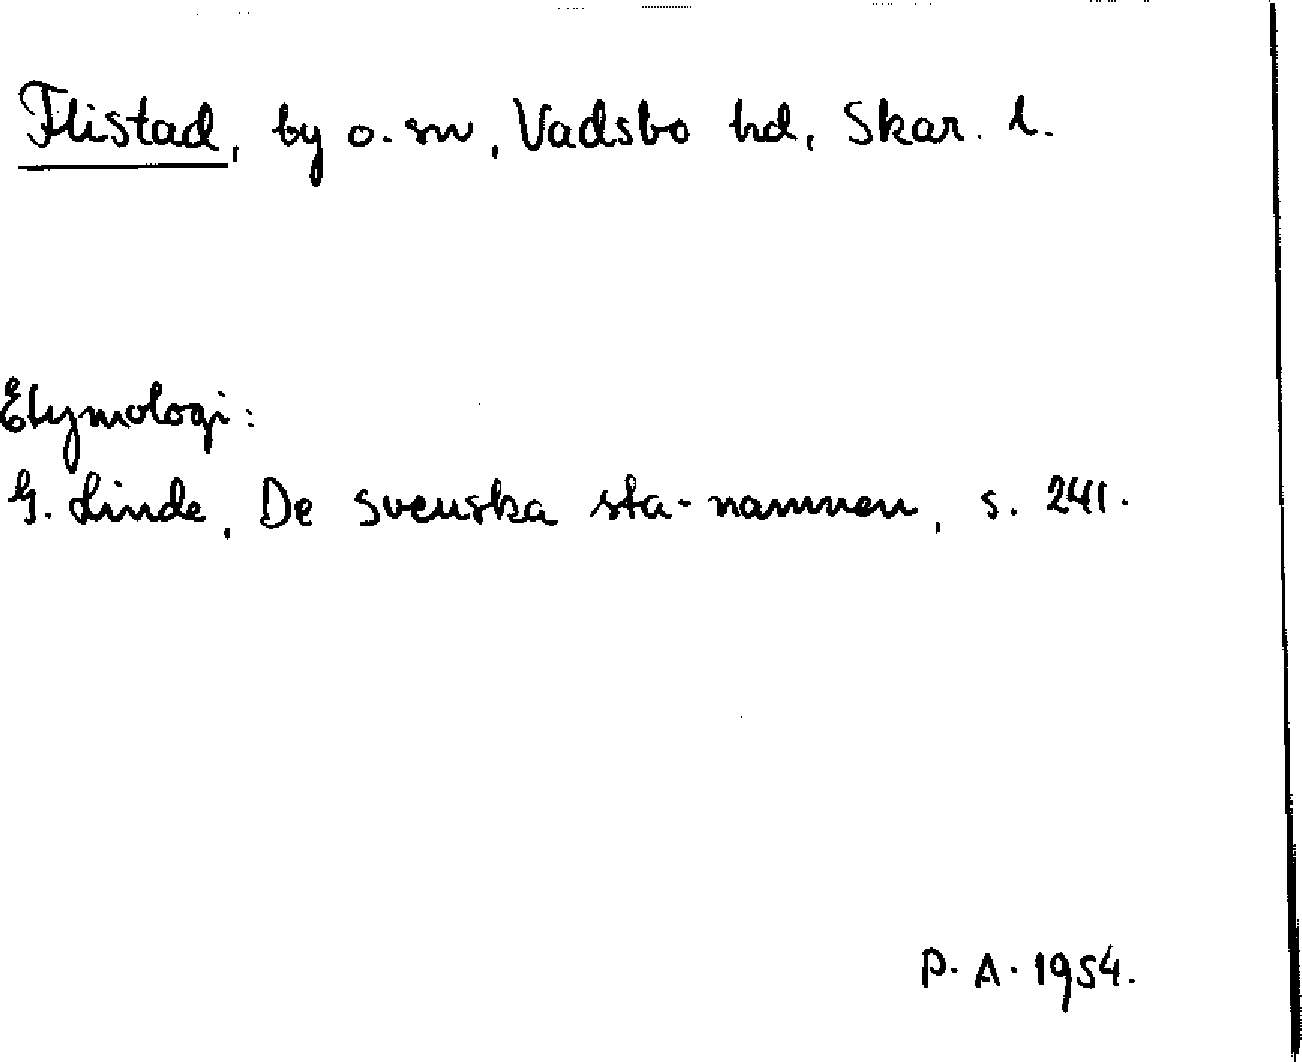 Flistad, by o. sn, Vadsbo hd, Skar. l.
Etymologi:
G. Linde, De svenska sta-namnen, s. 241.
P. A. 1954.